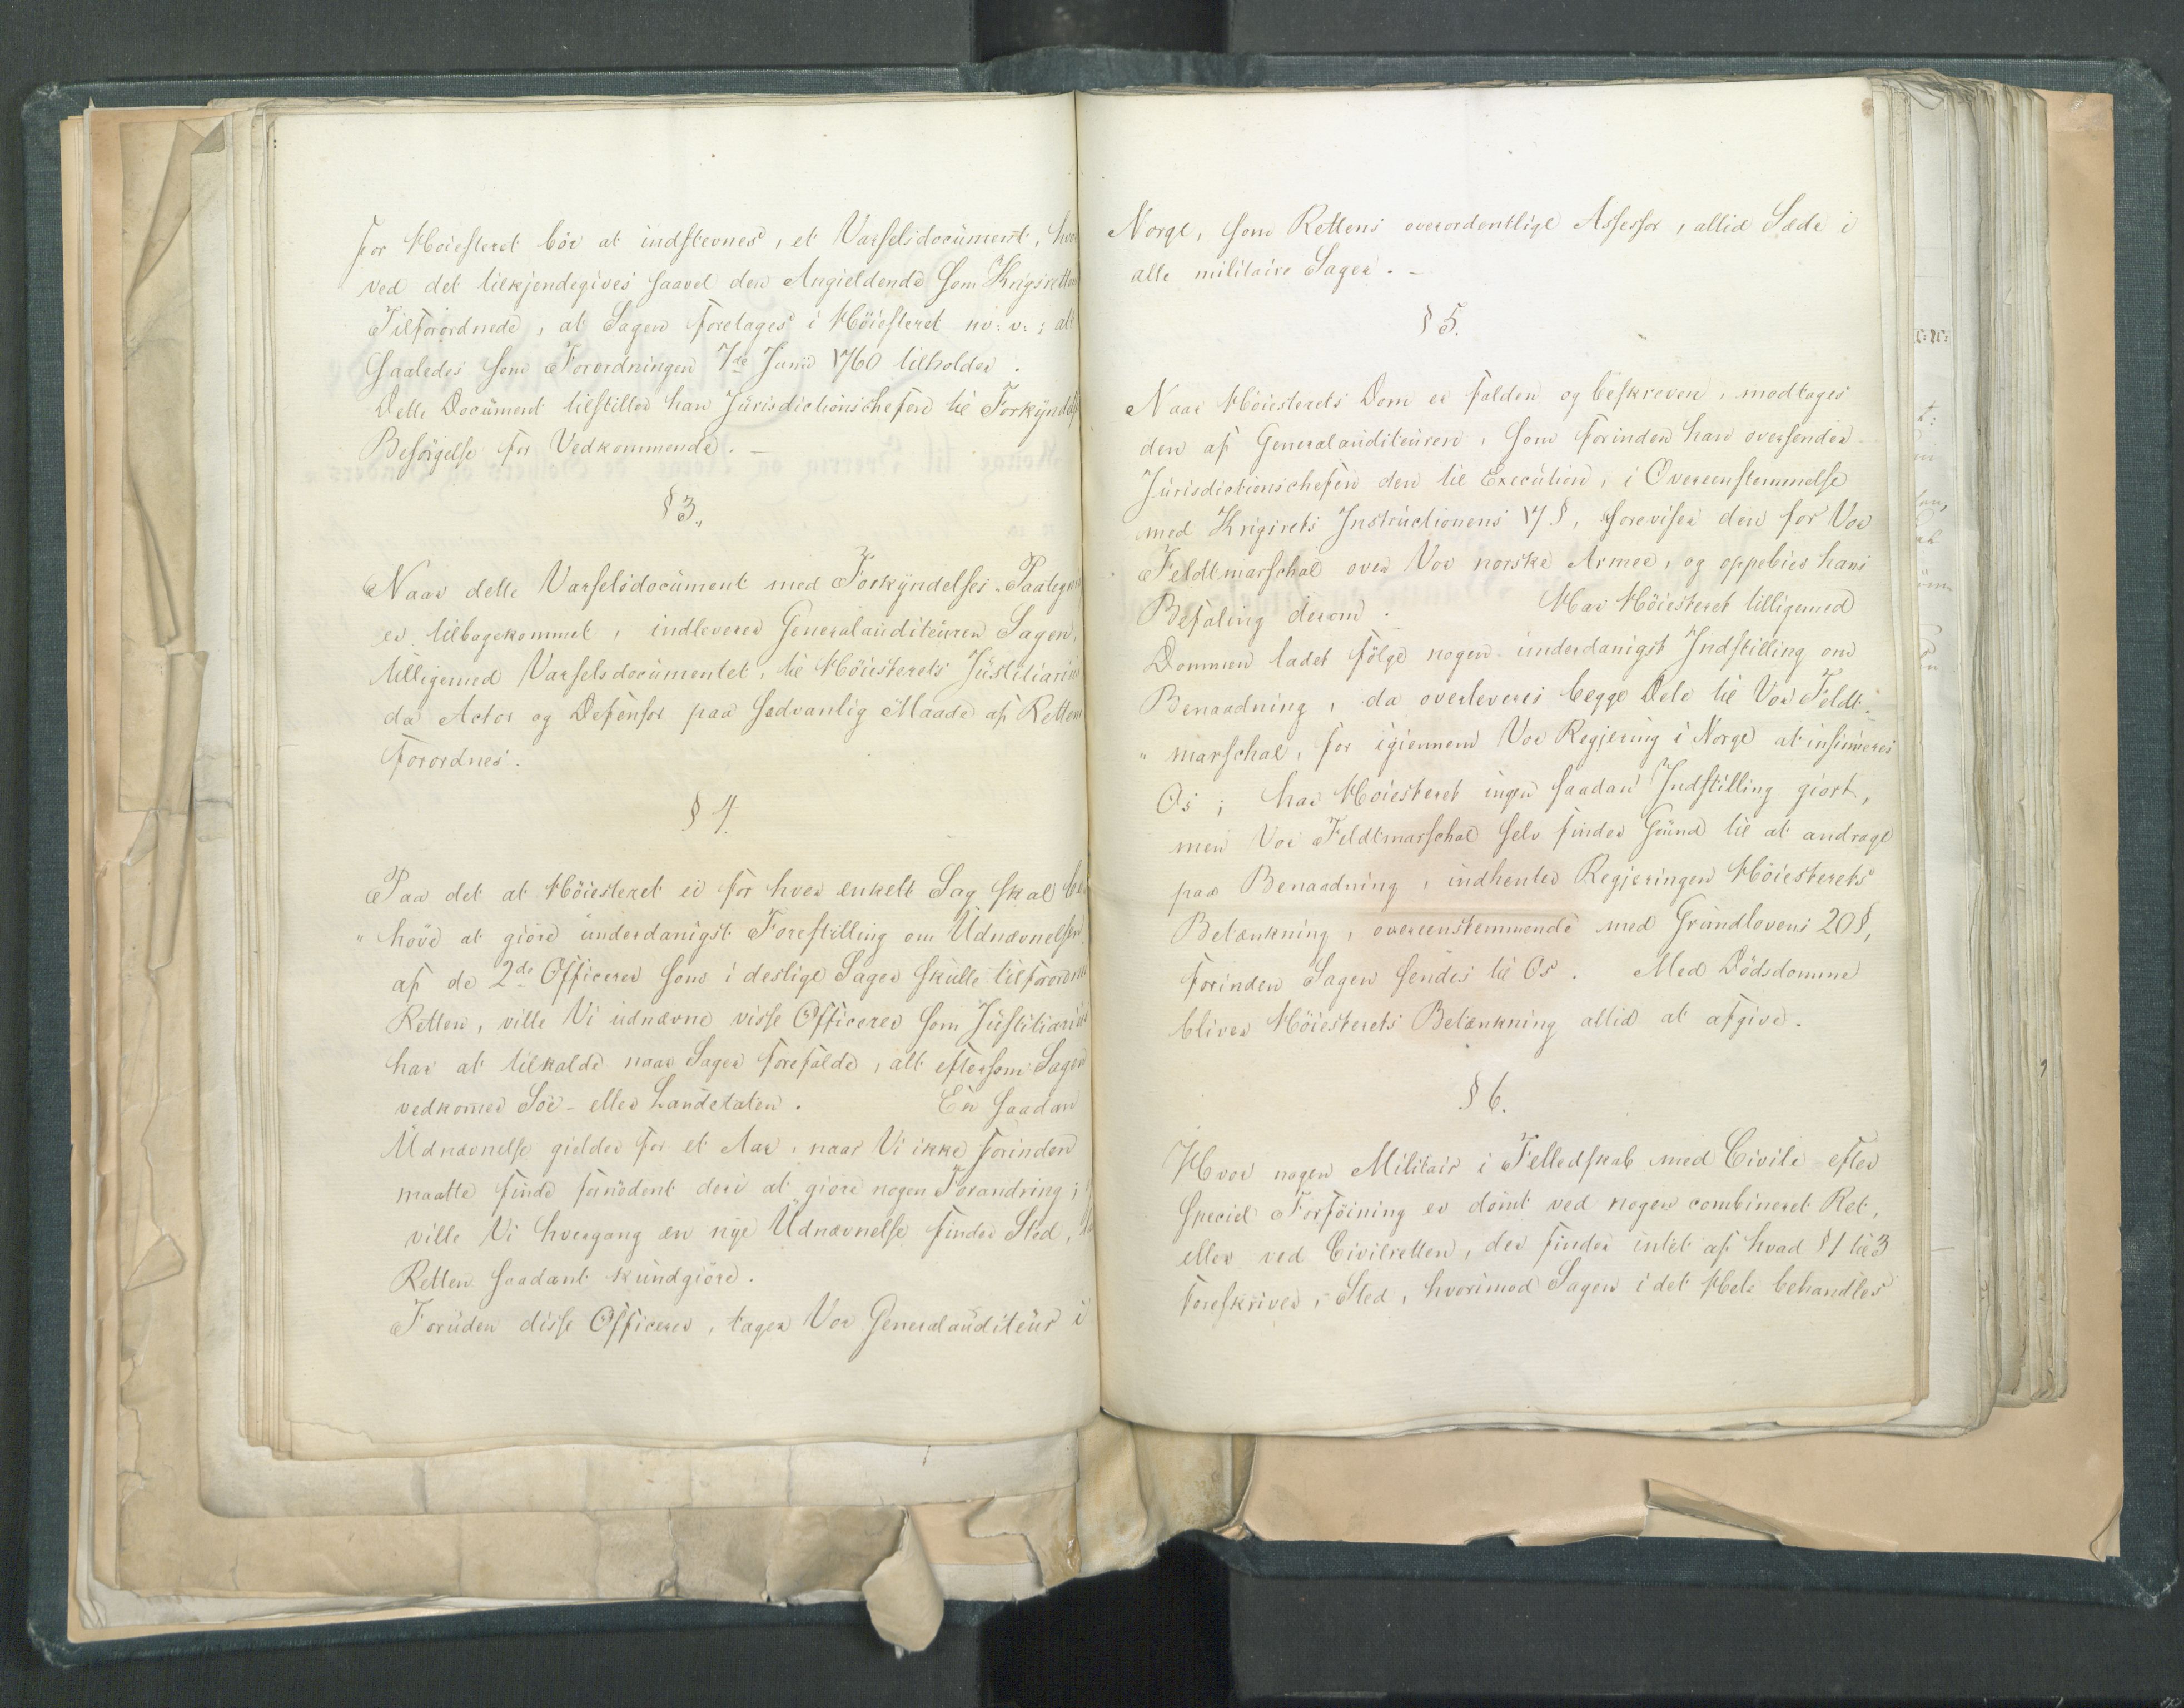 for Höiesteret bör at indstevnes, et Varselsdocument, hvor
ved det tilkjendegives saavel den Angieldende som Krigsretten
Tilforordnede, at Sagen foretages i Höiesteret m: v: ; alt
Saaledes som Forordningen 7de Junii 1760 tilholder.
Dette Document tilstiller han Jurisdictionschefen til Forkyndelse
Besörgelse for Vedkommende. -
§ 3.
Naar dette Varselsdocument med Forkyndelses-Paategning
er tilbagekommet, indleverer Generalauditeuren Sagen,
tilligemed Varselsdocumentet, til Höiesterets Justitiarius
da Actor og Defensor paa sædvanlig Maade af Retten
forordnes.
§ 4.
Paa det at Höiesteret ei for hver enkelt Sag skal be
" höve at giöre underdanigst Forestilling om Udnævnelsen
af de 2de Officerer som i deslige Sager skulle tilforordnes
Retten, ville Vi udnævne visse Officerer som Justitiarius
har at tilkalde naar Sager forefalde, alt eftersom Sagen
vedkomer Söe- eller Landetaten. En saadan
Udnævnelse gielder for et Aar, naar Vi ikke forinden
maatte finde fornödent deri at giöre nogen Forandring;
ville Vi hvergang en nye Udnævnelse finder Sted,
Retten saadant kundgiöre.
Foruden disse Officerer, tager Vor Generalauditeur i
Norge, som Rettens overordentlige Assessor, altid Sæde i
alle militaire Sager. -
§ 5.
Naar Höiesterets Dom er falden og beskreven, modtages
den af Generalauditeuren, som forinden han oversender
Jurisdictionschefen den til Execution, i Overeenstemmelse
med Krigsrets Instructionens 17 §, foreviser den for Vor
Feldtmarschal over Vor norske Armee, og oppebier hans
Befaling derom. Har Höiesteret tilligemed
Dommen ladet fölge nogen underdanigst Indstilling om
Benaadning, da overleveres begge Dele til Vor Feldt-
" marschal, for igiennem Vor Regjering i Norge at insinueres
Os; har Höiesteret ingen saadan Indstilling giort,
men Vor Feldtmarschal selv finder Grund til at andrage
paa Benaadning, indhenter Regjeringen Höiesterets
Betænkning, overeenstemmende med Grundlovens 20 §,
forinden Sagen sendes til Os. Med Dödsdomme
bliver Höiesterets Betænkning altid at afgive.
§ 6.
Hvor nogen Militair i Felledskab med Civile efter
speciel Forföining er dömt ved nogen combineret Ret,
eller ved Civilretten, der finder intet af hvad § 1 til 3
foreskriver, Sted, hvorimod Sagen i det Hele behandles